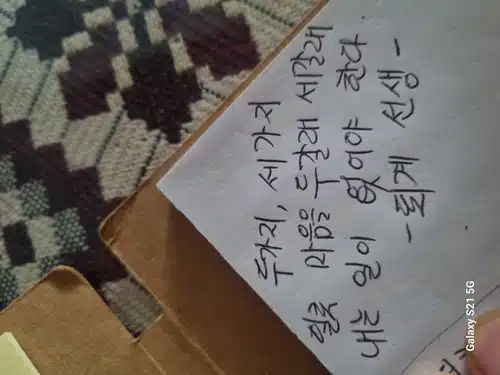 두가지, 세가지
일로 마음을 두갈래 세갈래
내는 일이 없어야 한다
- 퇴계 선생 -
Galaxy S21 5G